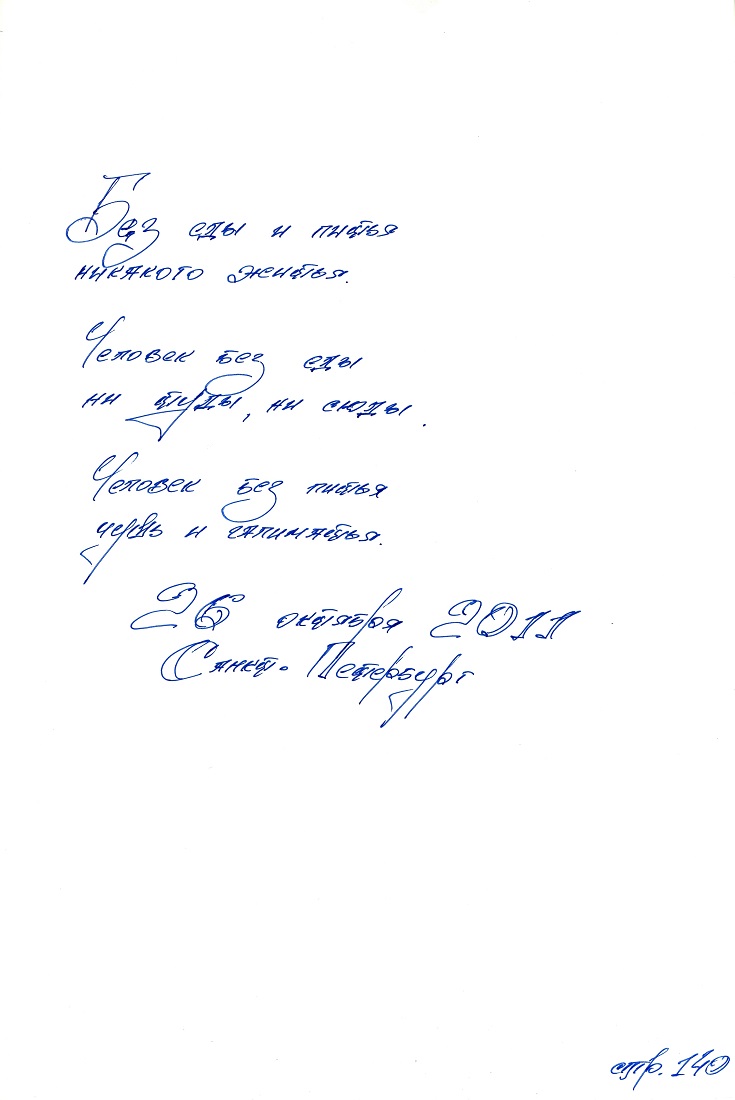 Без еды и питья
никакого житья.
Человек без еды
ни туды, ни сюды.
Человек без питья
чушь и галиматья.
26 октября 2011
Санкт-Петербург
стр. 140